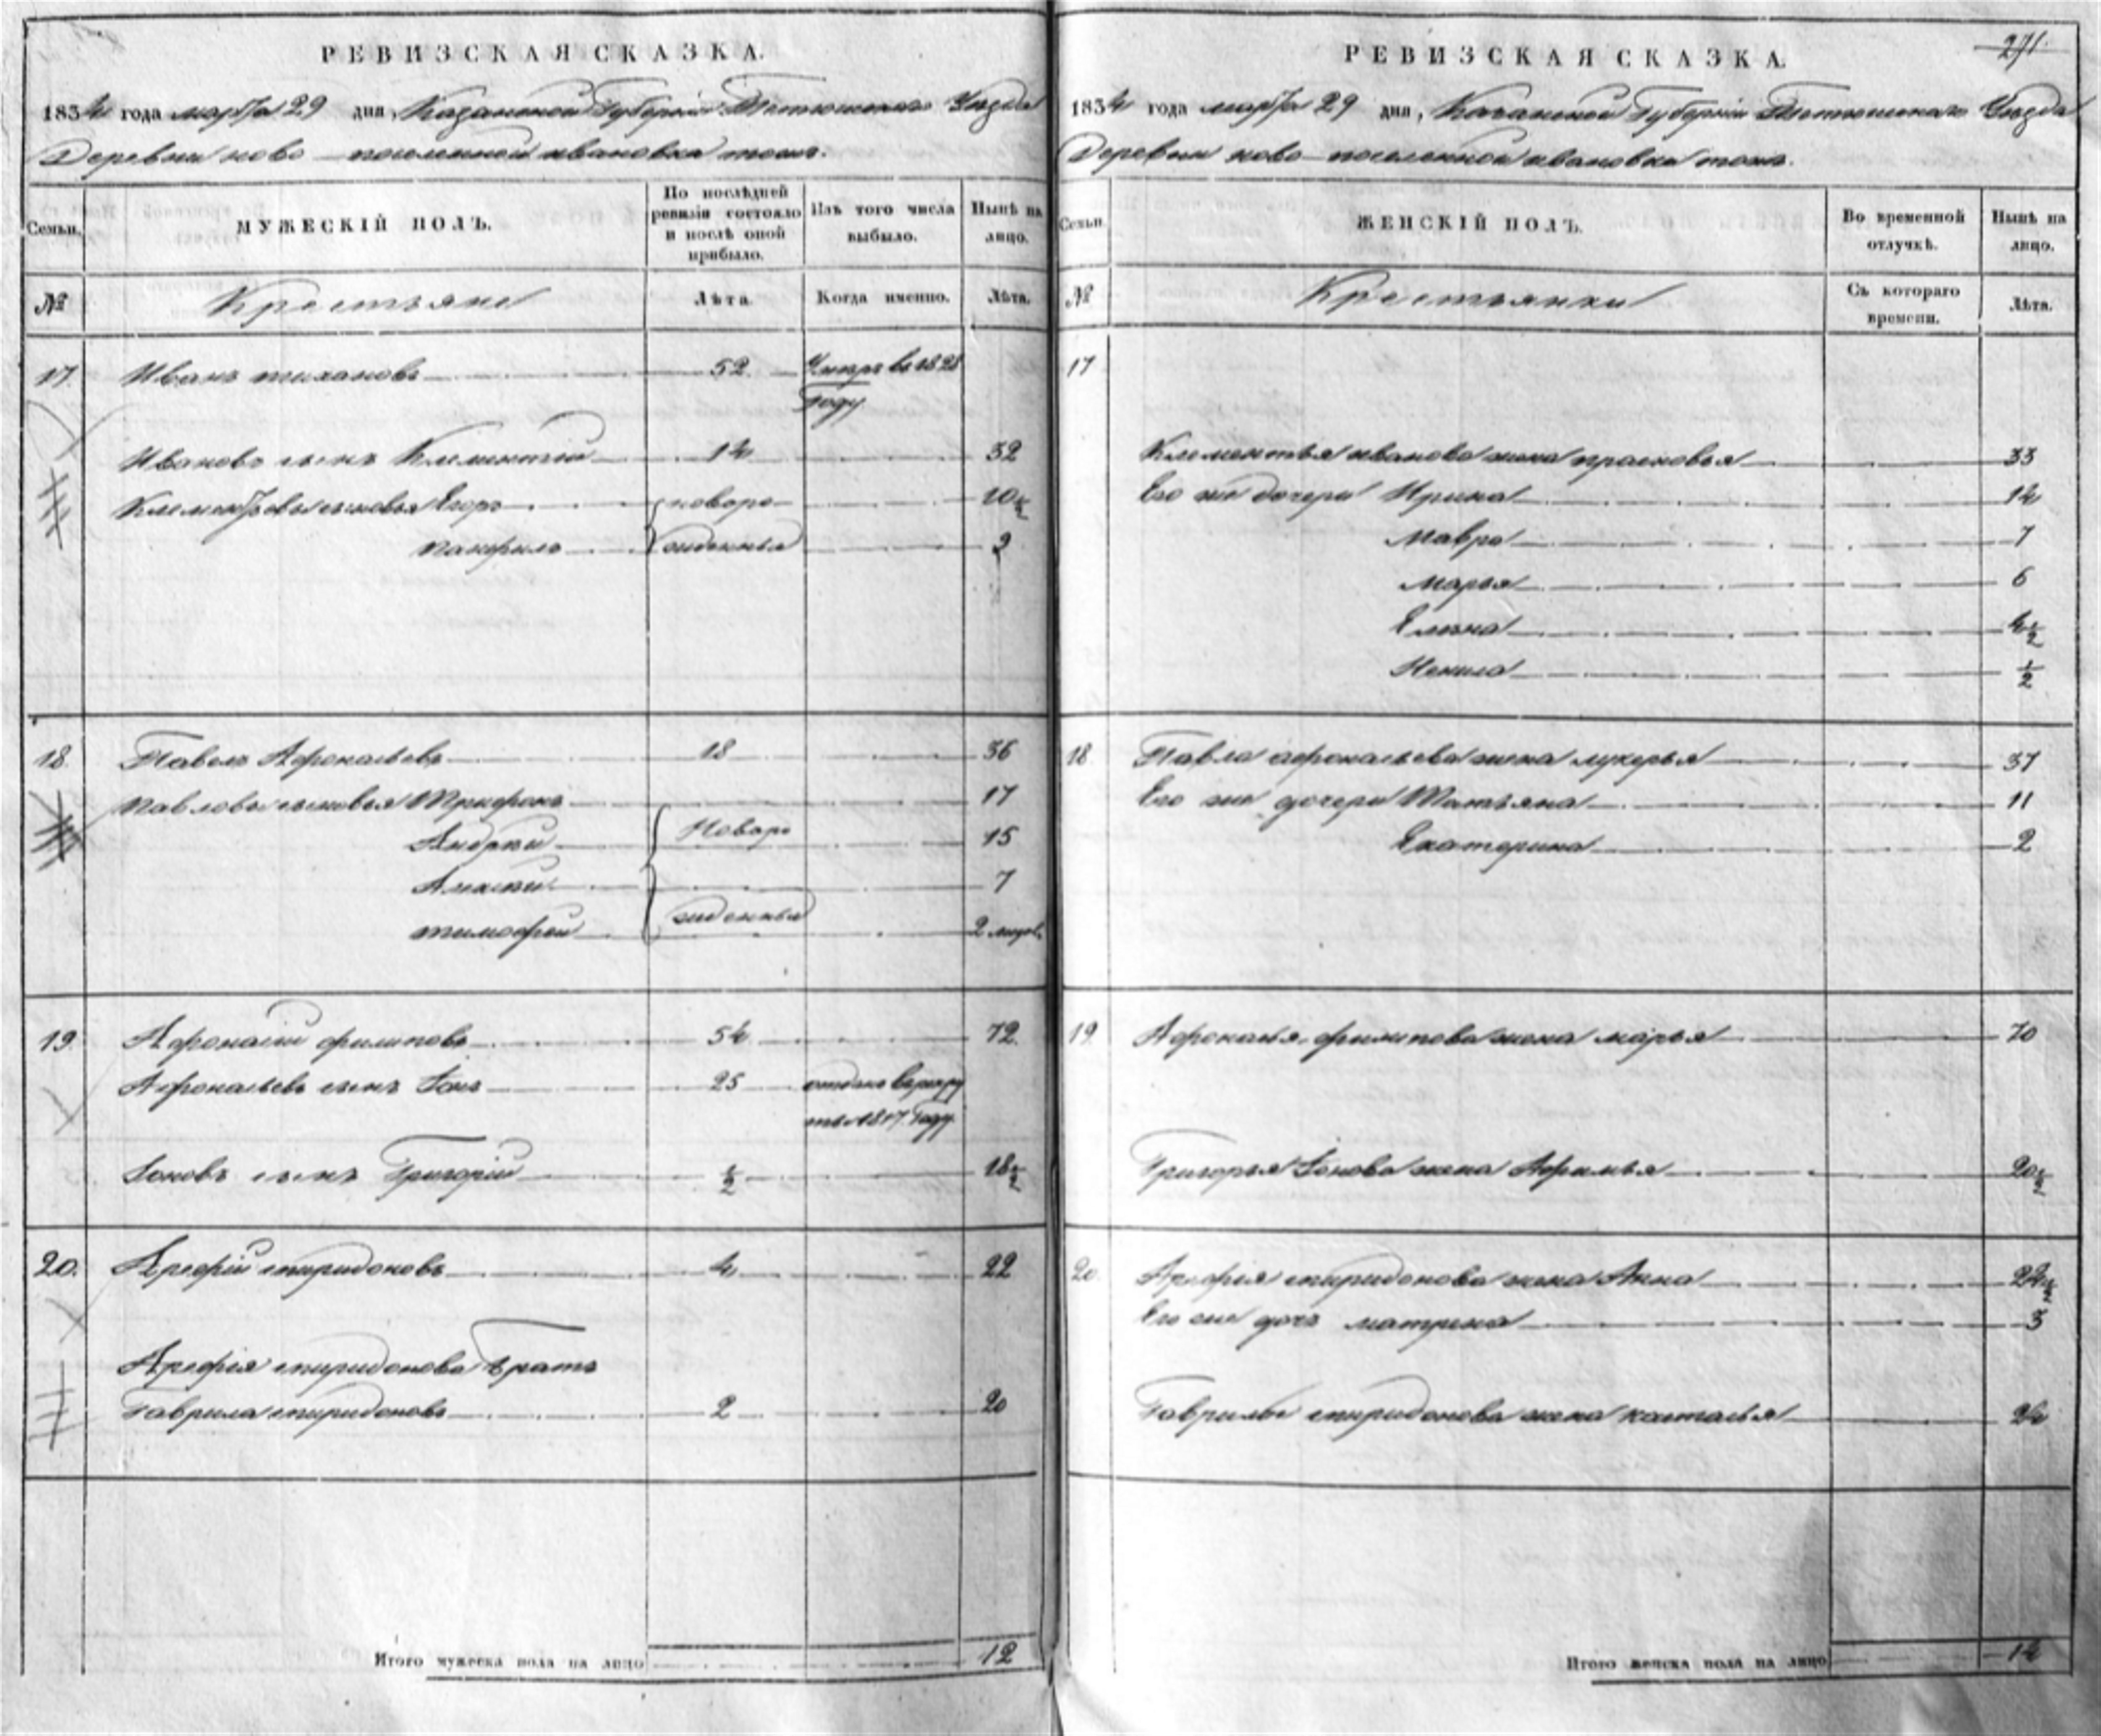 РЕВИЗСКАЯ СКАЗКА.
1834 года марта 29 дня, Казанской Губернiи Тетюшскаго Уѣзда
Деревни ново поселенной ивановка тожъ.
Семьи.
МУЖЕСКІЙ ПОЛЪ.
По послѣдней ревизіи состояло и послѣ оной прибыло.
Изъ того числа выбыло.
Нынѣ на лицо.
№
Крестьяне
Лѣта.
Когда именно.
Лѣта.
17. Иванъ тихановъ 52 Умеръ въ 1828
Году
Ивановъ сынъ Клементiй 14 32
Клементьевы сыновья Егоръ новоро 10½
панфилъ жденныя 2
18. Павелъ Афонасьевъ 18 36
павловы сыновья Трифонъ 17
Андрей Новоро 15
Алексѣй 7
тимофей жденныя 2 мѣсяц.
19. Афонасiй филиповъ 54 72
Афонасьевъ сынъ Іонъ 25 отданъ в рекру
ты 1817 Году
Іоновъ сынъ Григорiй ½ 18½
20. Арефiй спиридоновъ 4 22
Арефiя спиридонова братъ
Гаврила спиридоновъ 2 20
Итого мужеска пола на лицо 12
271.
РЕВИЗСКАЯ СКАЗКА.
1834 года марта 29 дня, Казанской Губернiи Тетюшскаго Уѣзда
Деревни ново поселенной ивановка тожъ.
Семьи.
ЖЕНСКІЙ ПОЛЪ.
Во временной отлучкѣ.
Нынѣ на лицо.
№
Крестьянки
Съ котораго времени.
Лѣта.
17
Клементья иванова жена прасковья 33
Его же дочери Ирина 14
Мавра 7
Марья 6
Елена 4½
Ненила ½
18 Павла афонасьева жена лукерья 37
Его же дочери Татьяна 11
Екатерина 2
19 Афонасья филипова жена марья 70
Григорья Іонова жена Афимья 20½
20. Арефiя спиридонова жена Анна 24½
Его же дочь матрена 3
Гаврилы спиридонова жена настасья 24
Итого женска пола на лицо 14